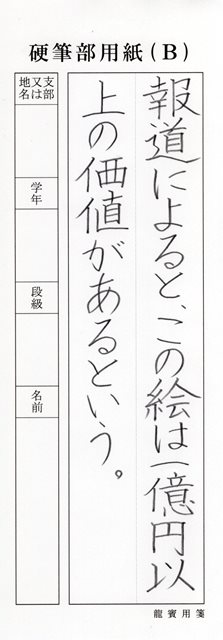 硬筆部用紙(B)
報道によると、この絵は一億円以
上の価値があるという。
支部又は地名
学年
段級
名前
龍賓用箋